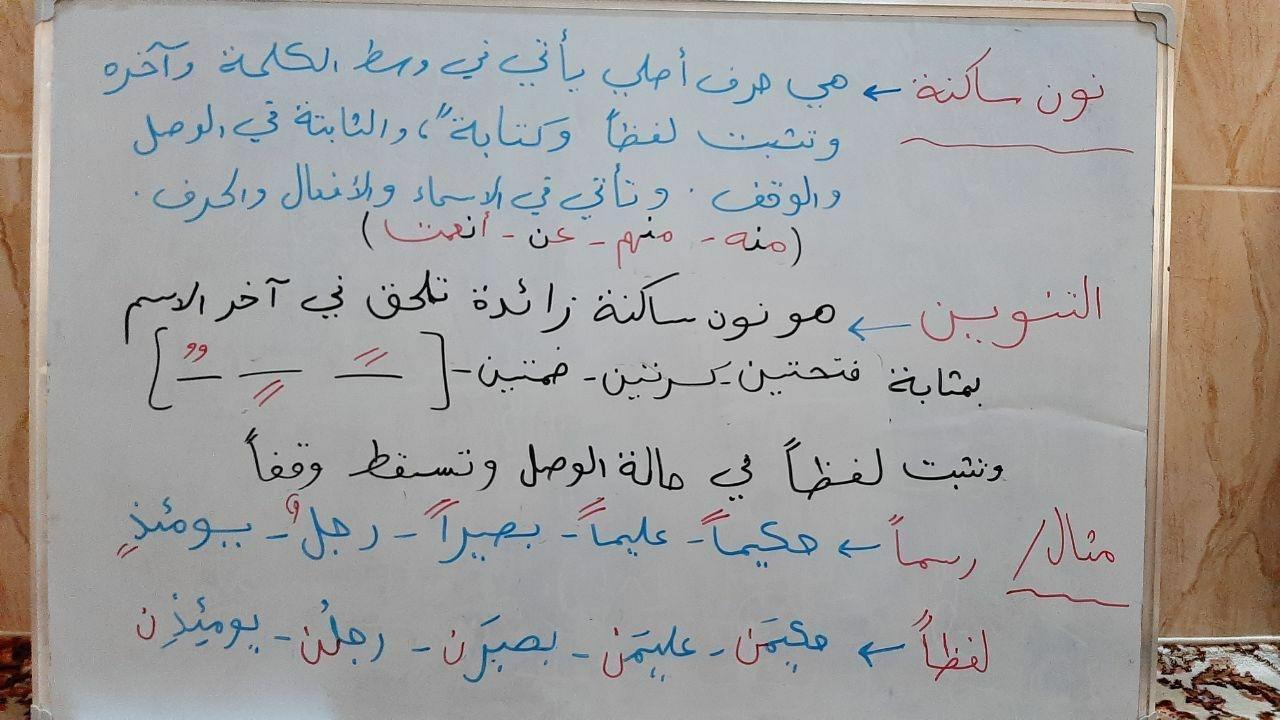 نون ساكنة ← هي حرف أصلي يأتي في وسط الكلمة وآخره
وتثبت لفظاً وكتابةً، والثابتة في الوصل
والوقف. وتأتي في الاسماء والأفعال والحرف.
(منه - منهم - عن - أنعمت)
التنوين ← هو نون ساكنة زائدة تلحق في آخر الاسم
بمثابة فتحتين - كسرتين - ضمتين - [ ـًـ ـٍـ ـٌـ ]
وتثبت لفظاً في حالة الوصل وتسقط وقفاً
مثال/ رسماً ← حكيماً - عليماً - بصيراً - رجلٌ - يومئذٍ
لفظاً ← حكيمَن - عليمَن - بصيرَن - رجلُن - يومئِذِن